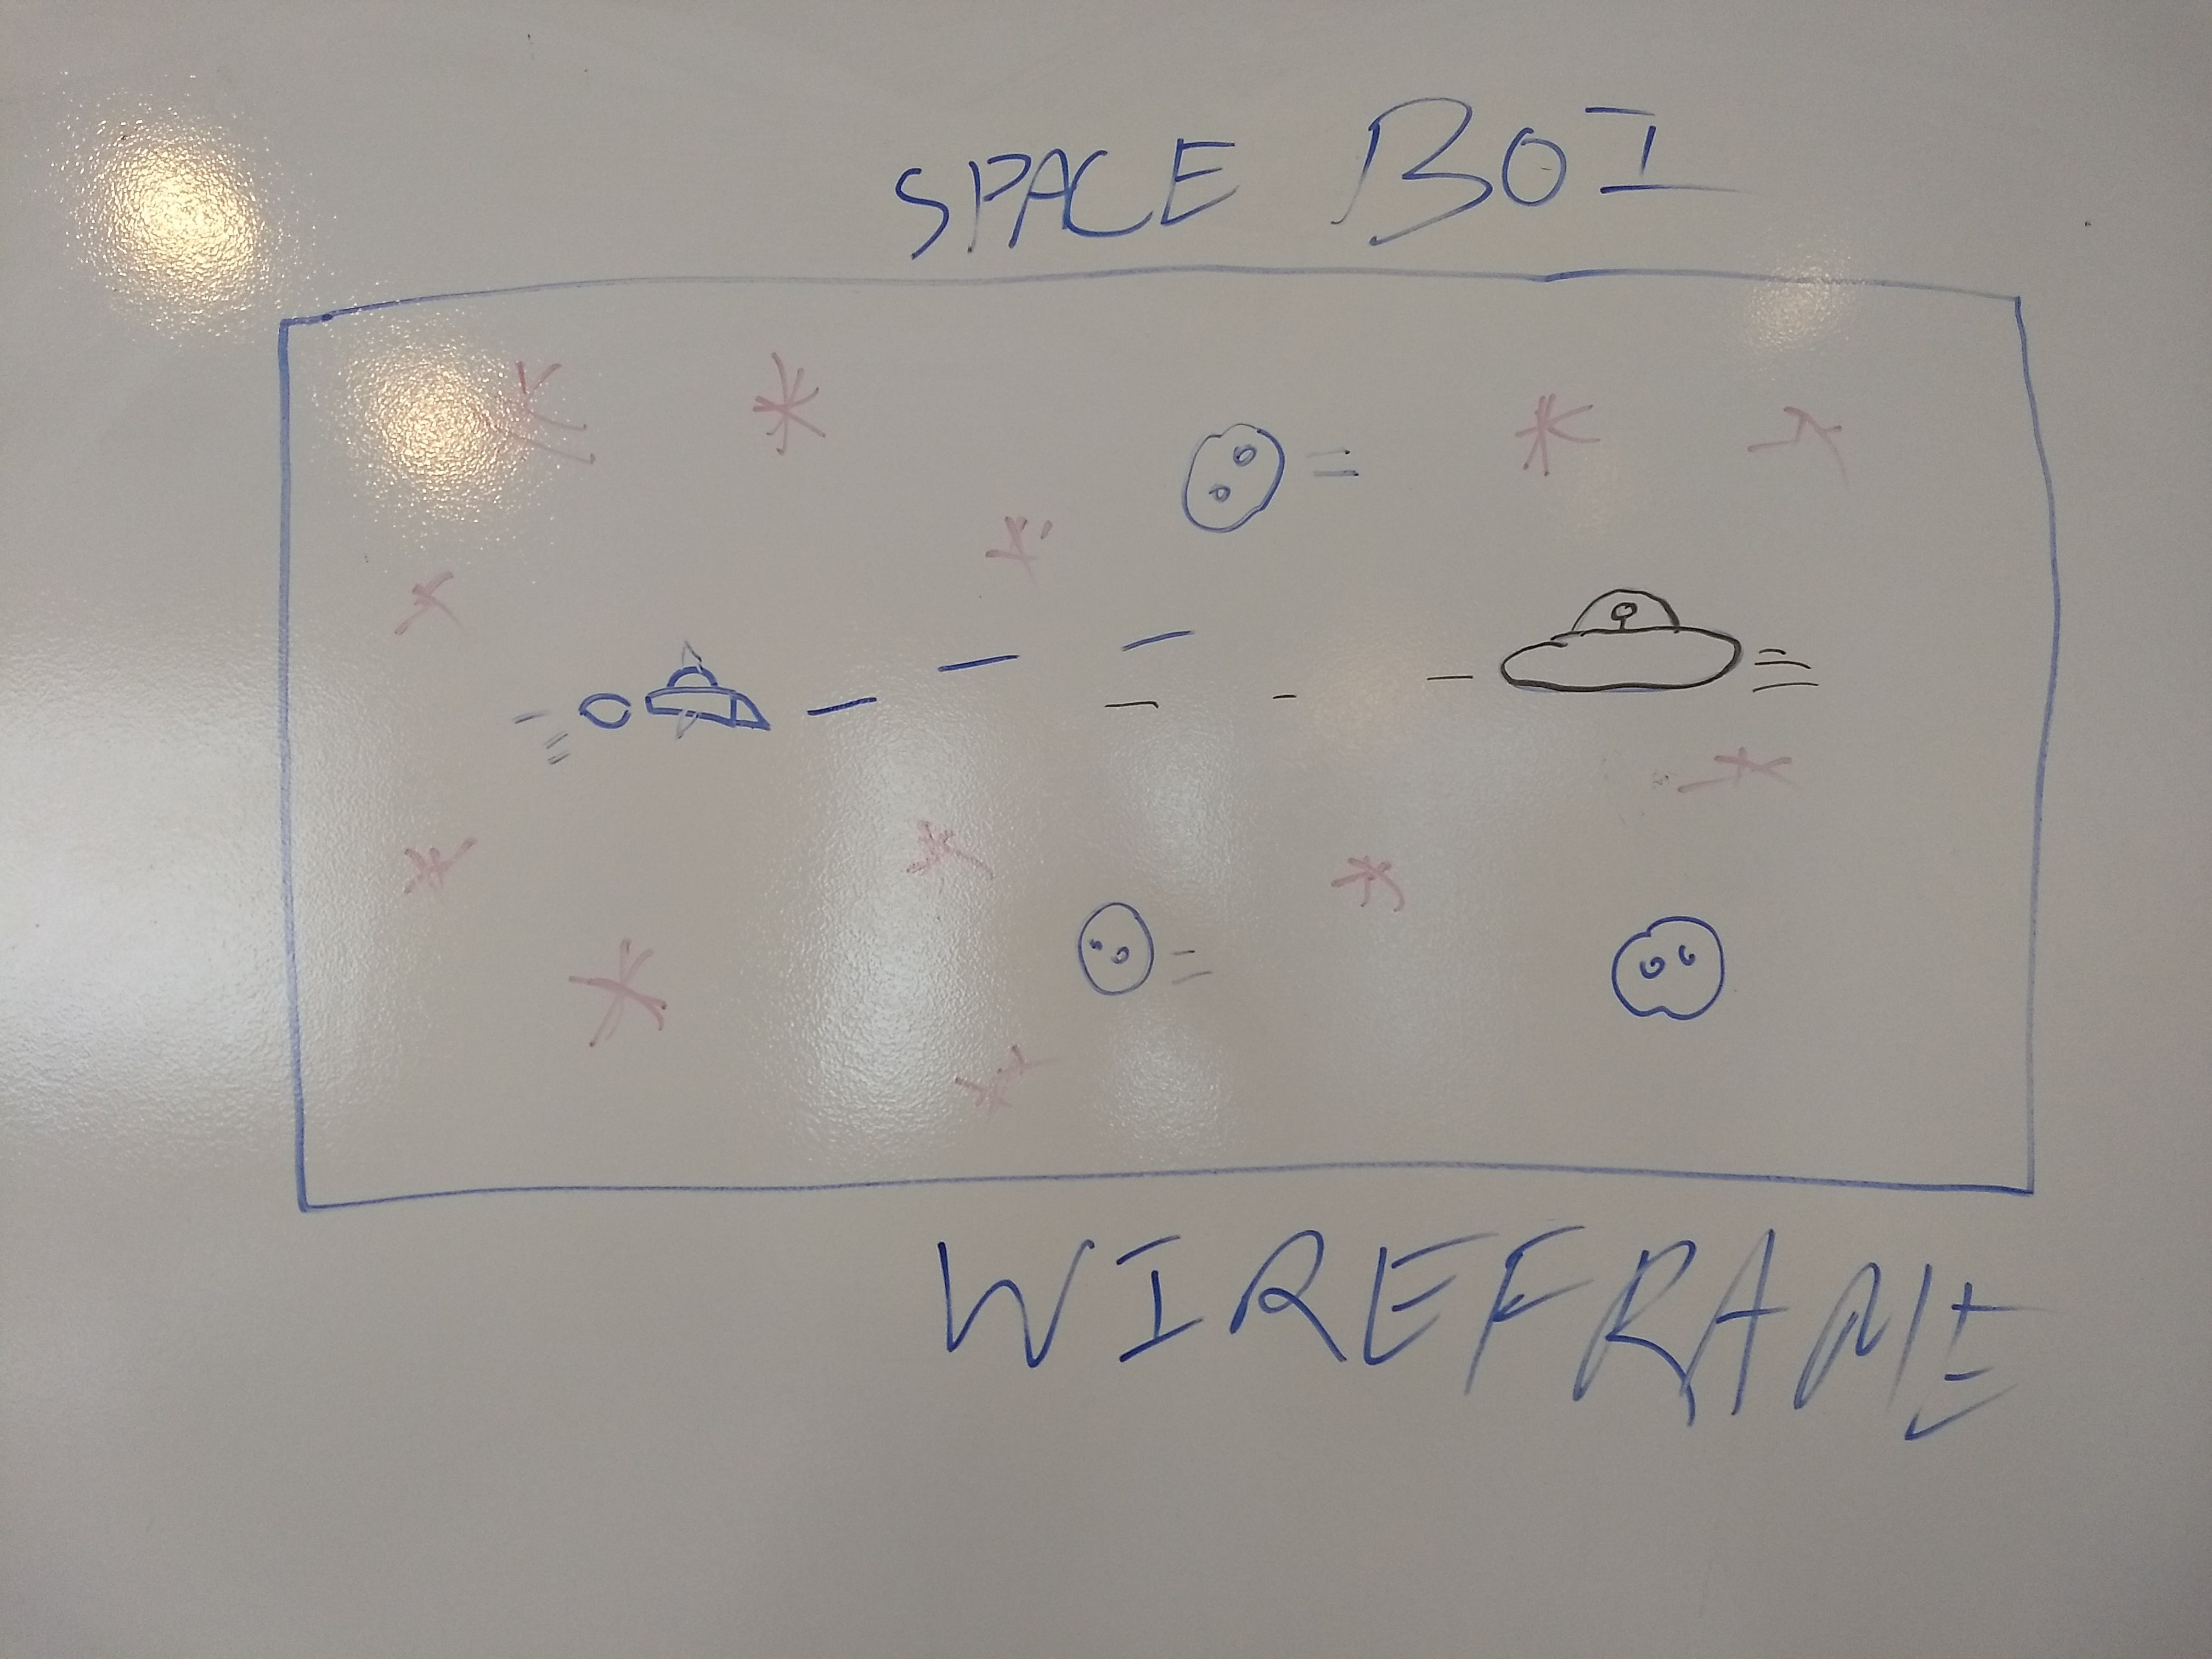 SPACE BOI
WIREFRAME